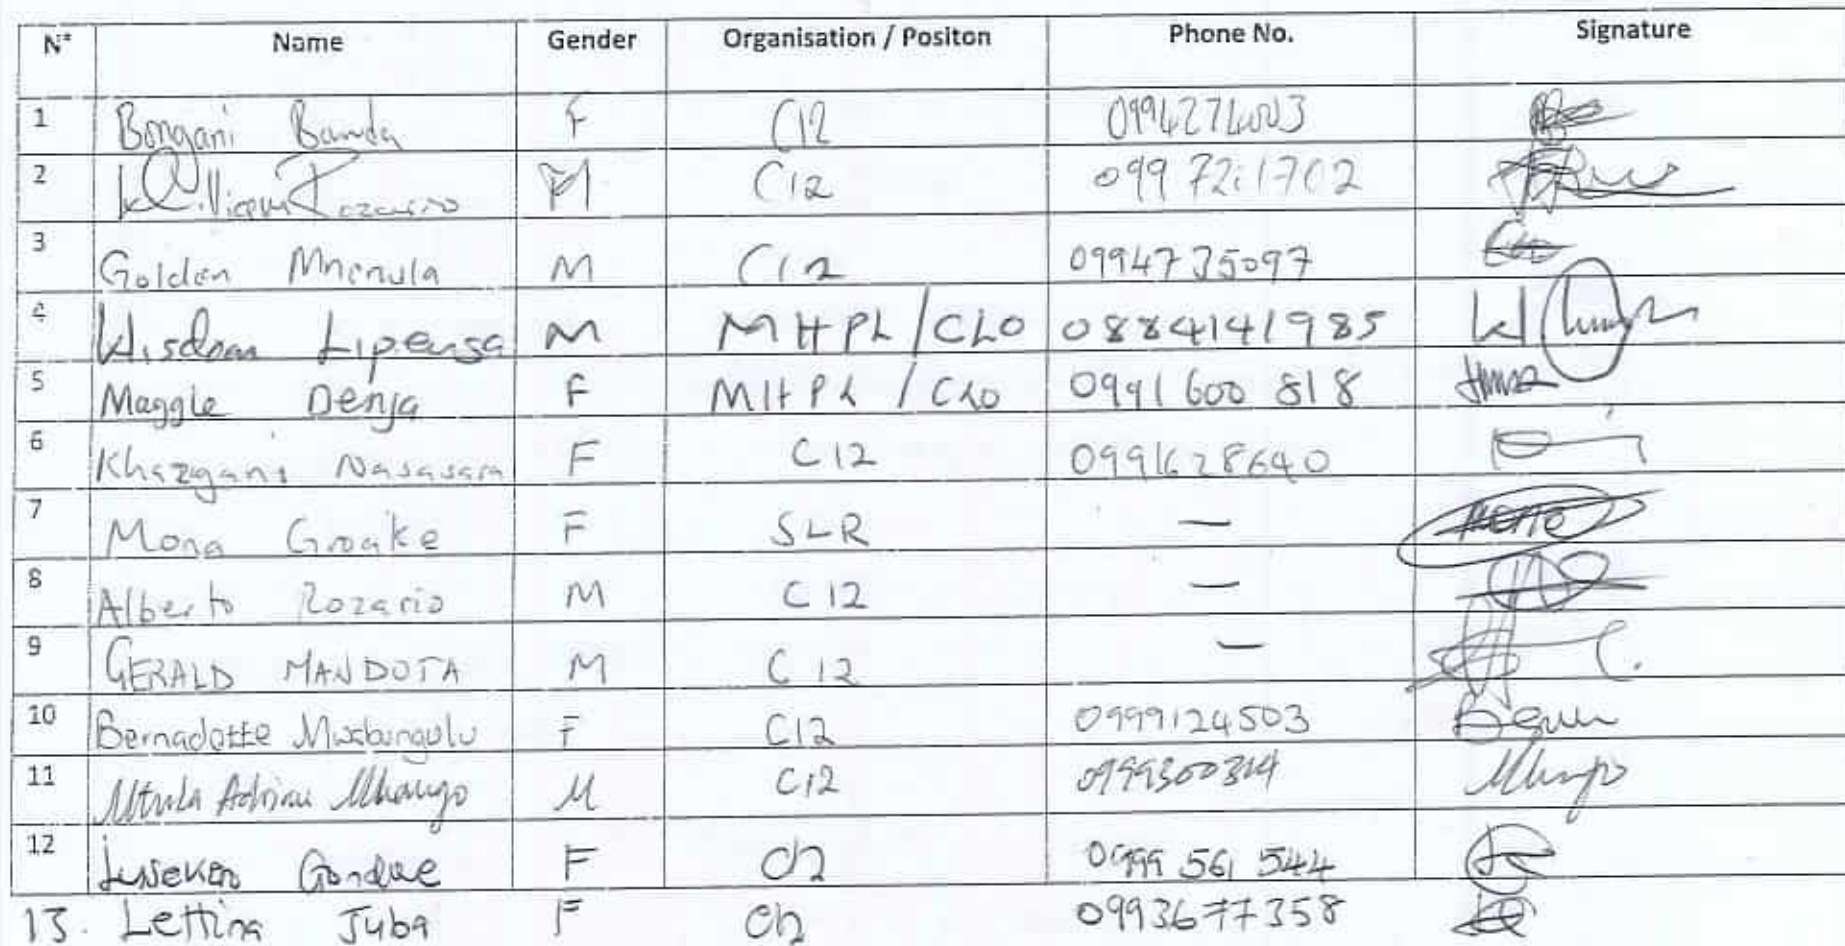 N° Name Gender Organisation / Positon Phone No. Signature
1 Bongani Banda F C12
2 M C12
3 Golden M C12 0994735097
4 Wisdom Lipenga M MHPL/CLO 0884141985
5 Maggie Denja F MHPL / CLO 0991 600 818
6 Khazgani Nasasara F C12 0991628640
7 Mona Groake F SLR —
8 Alberto Rozario M C12 —
9 GERALD MANDOTA M C12 —
10 Bernadette F C12 0999124503
11 Mtula Adrian Mhango M C12
12 Gondwe F C12 0999 561 544
13. Lettina Juba F C12 0993677358